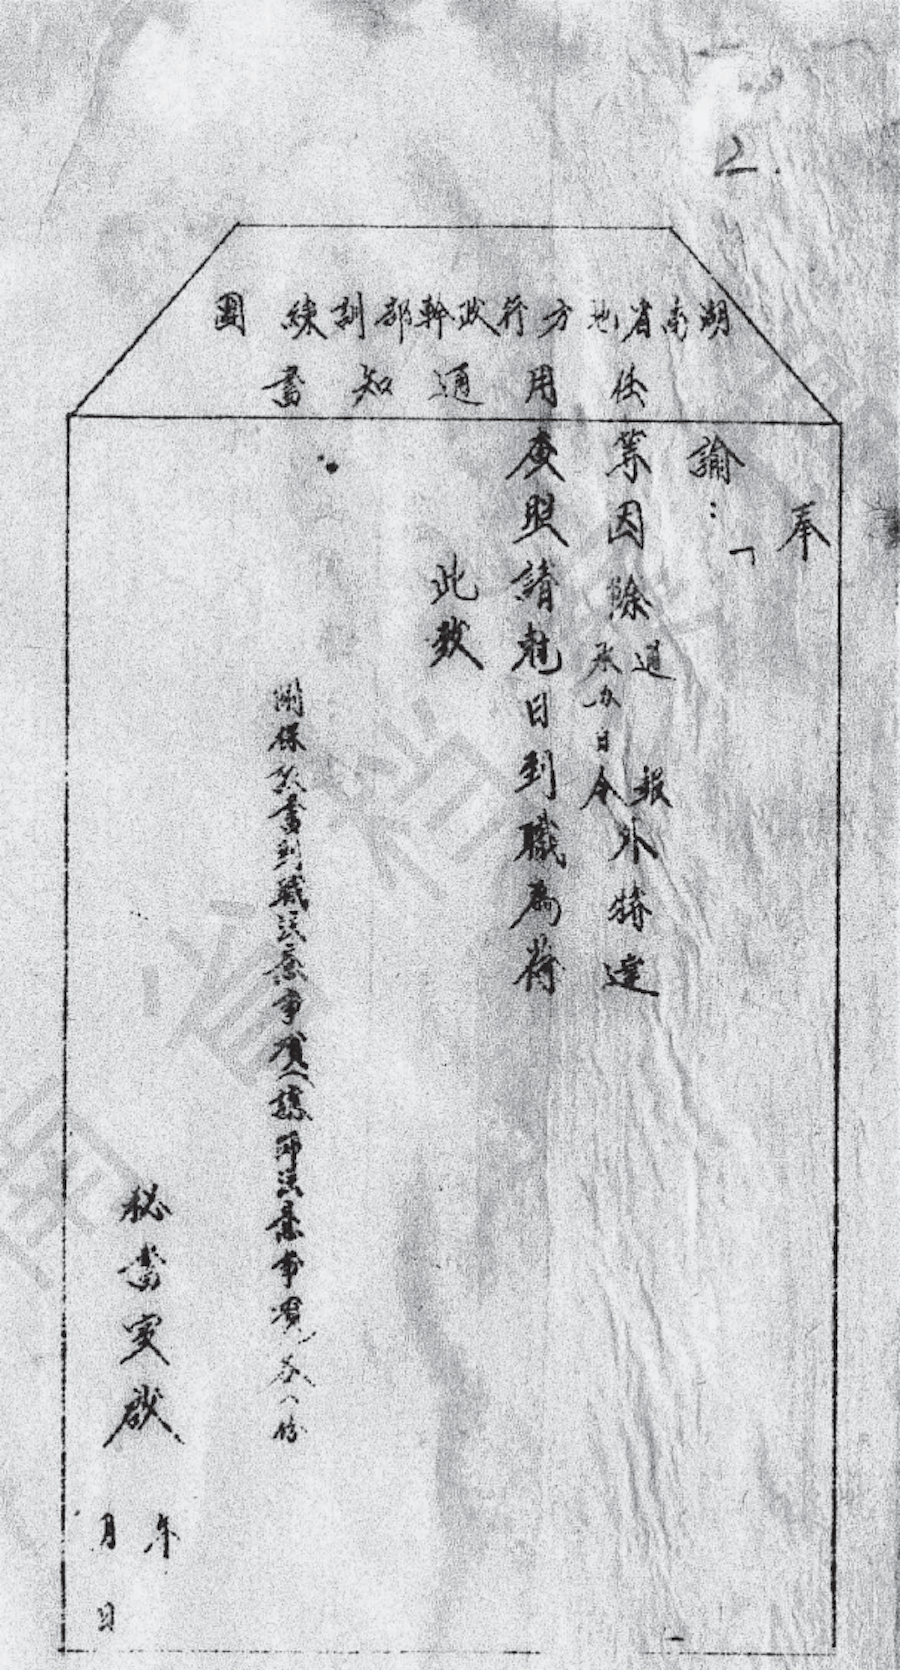 2.
湖南省地方行政幹部訓練團
通知書
奉
諭：「
任等因除通報外特達
承辦日令
用查照請尅日到職為荷
此致
附保証書到職注意事項(講師注意事項)各一份
秘書室啟
年
月
日